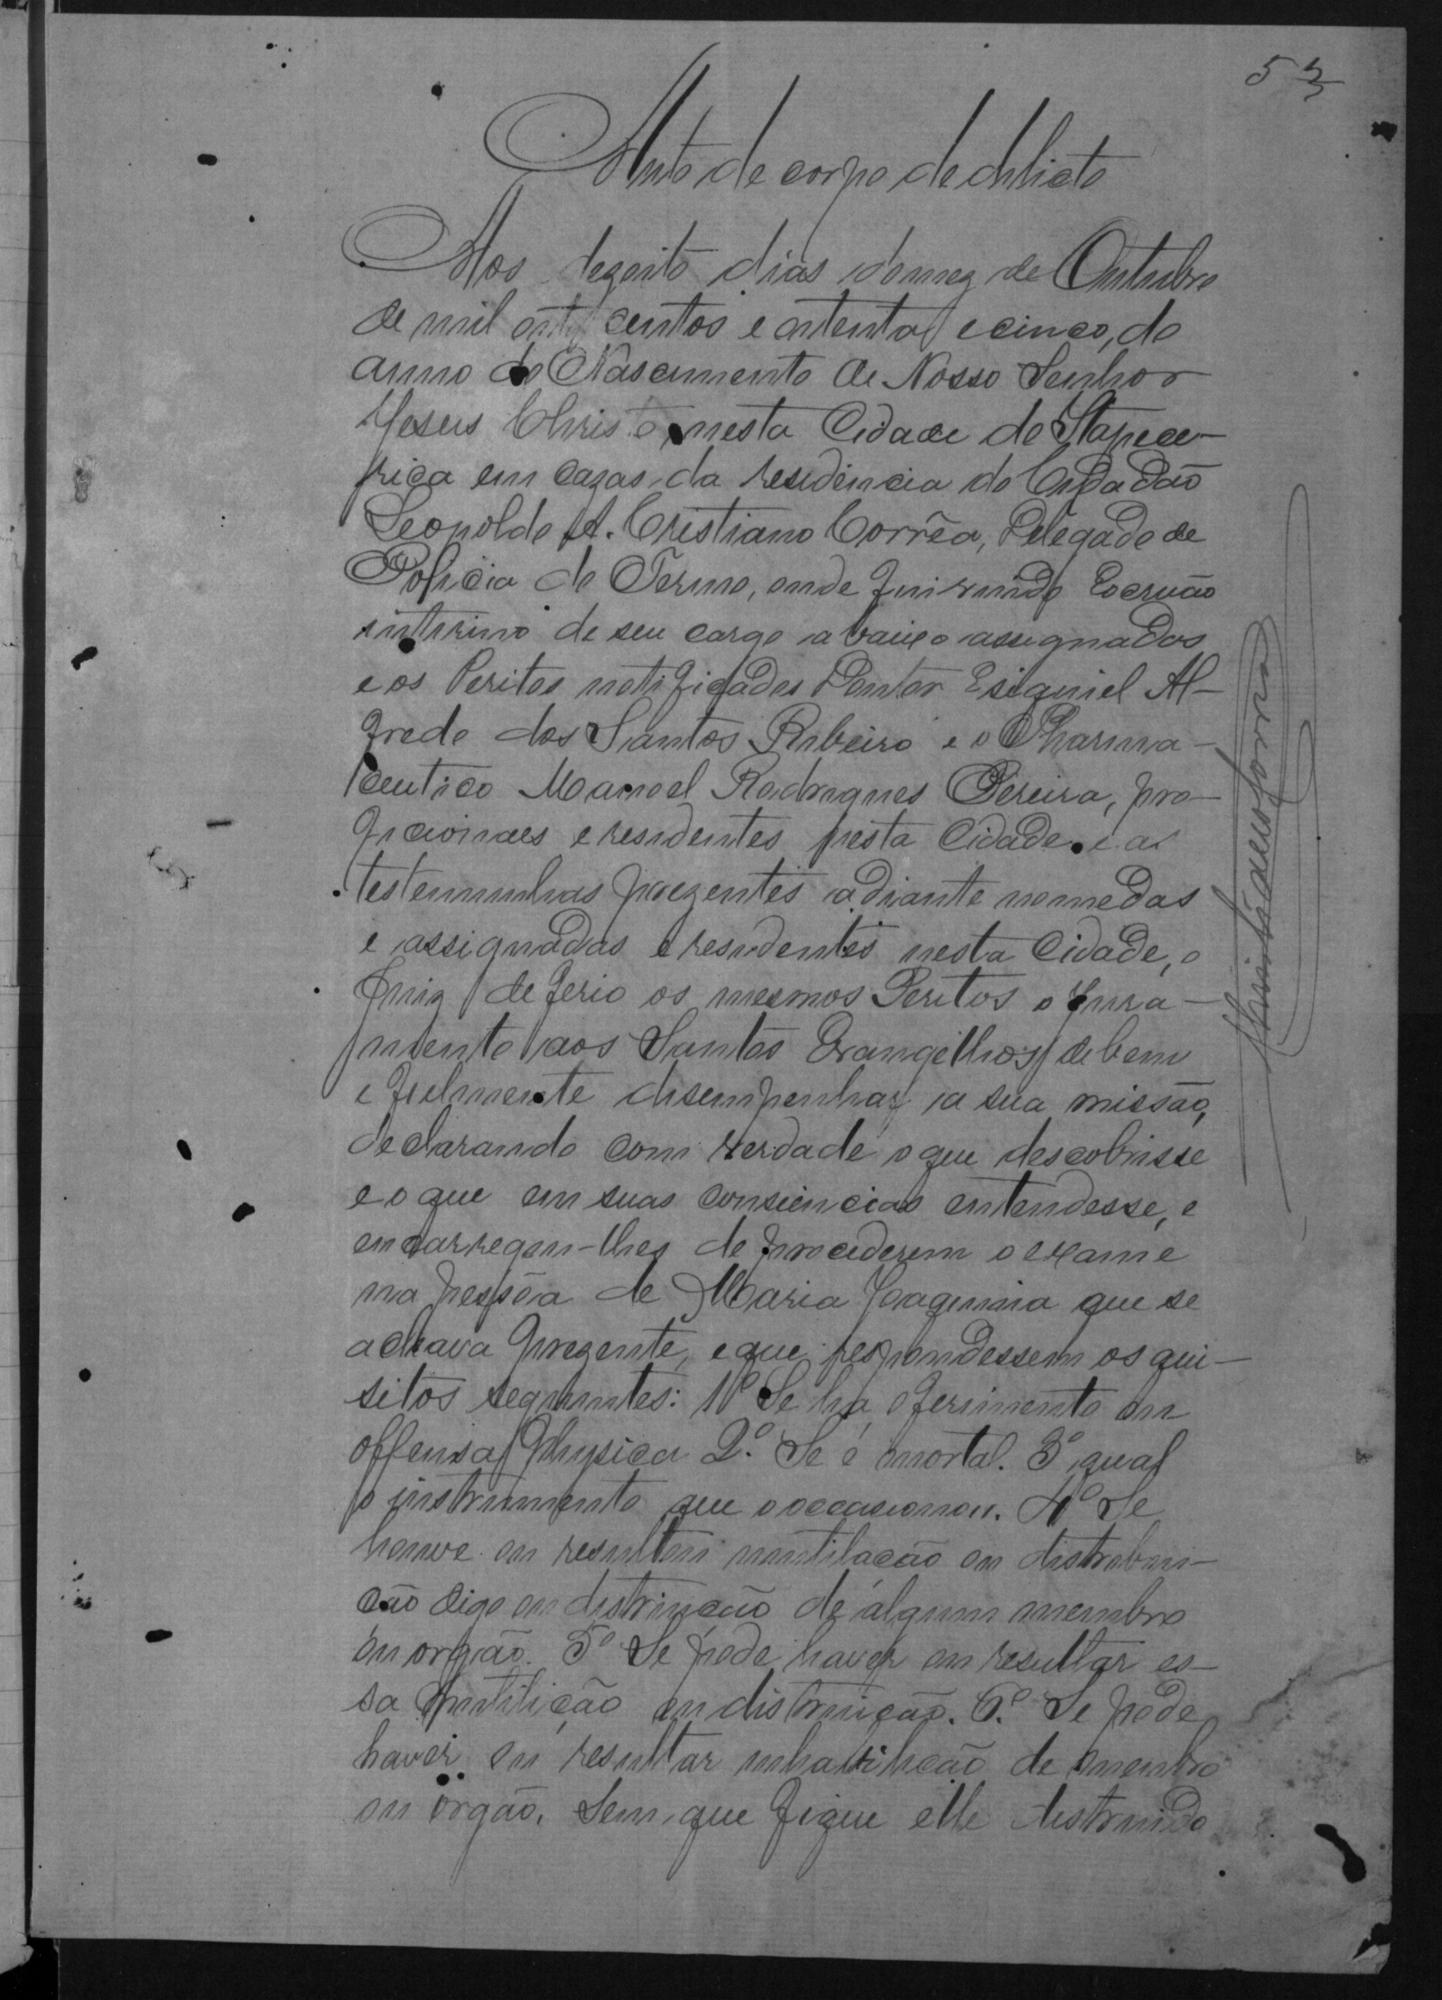 53
Auto de corpo de delicto
Aos dezoito dias do mez de Outubro
de mil oito centos e oitenta e cinco, do
anno do Nascimento de Nosso Senhor
Yesus Christo, nesta Cidade de Itapece-
rica em cazas da residencia do Cidadão
Leopoldo A. Cristiano Corrêa, Delegado de
Policia do Termo, onde fui vindo Escrivão
interino de seu cargo abaixo assignados
e os Peritos notificados Doutor Esiquiel Al-
fredo dos Santos Ribeiro e o Pharma-
ceutico Manoel Rodrigues Pereira, pro-
ficionaes e residentes nesta Cidade. e as
testemunhas prezentes adiante nomedas
e assignadas e residentes nesta Cidade, o
Juiz deferio os mesmos Peritos o jura-
mento aos Santos Evangelhos de bem
e fielmente desempenhar a sua missão,
declarando com verdade o que descobrisse
e o que em suas consciencias entendesse, e
encarregou-lhes de procederem o exame
na pessôa de Maria Joaquina que se
achava prezente, e que respondessem os qui-
sitos seguintes: 1º Se ha ferimento ou
offensa physica 2.º Se é mortal. 3º qual
o instrumento que o occasionou. 4º Se
houve ou resultou mutilacão ou distrobui-
cão digo ou distruicão de algum membro
ou orgão. 5º Se pode haver ou resultar es-
sa mutilicão ou distruicão. 6.º Se pode
haver ou resultar inhabilicão de membro
ou orgão. Sem que fique elle distruido